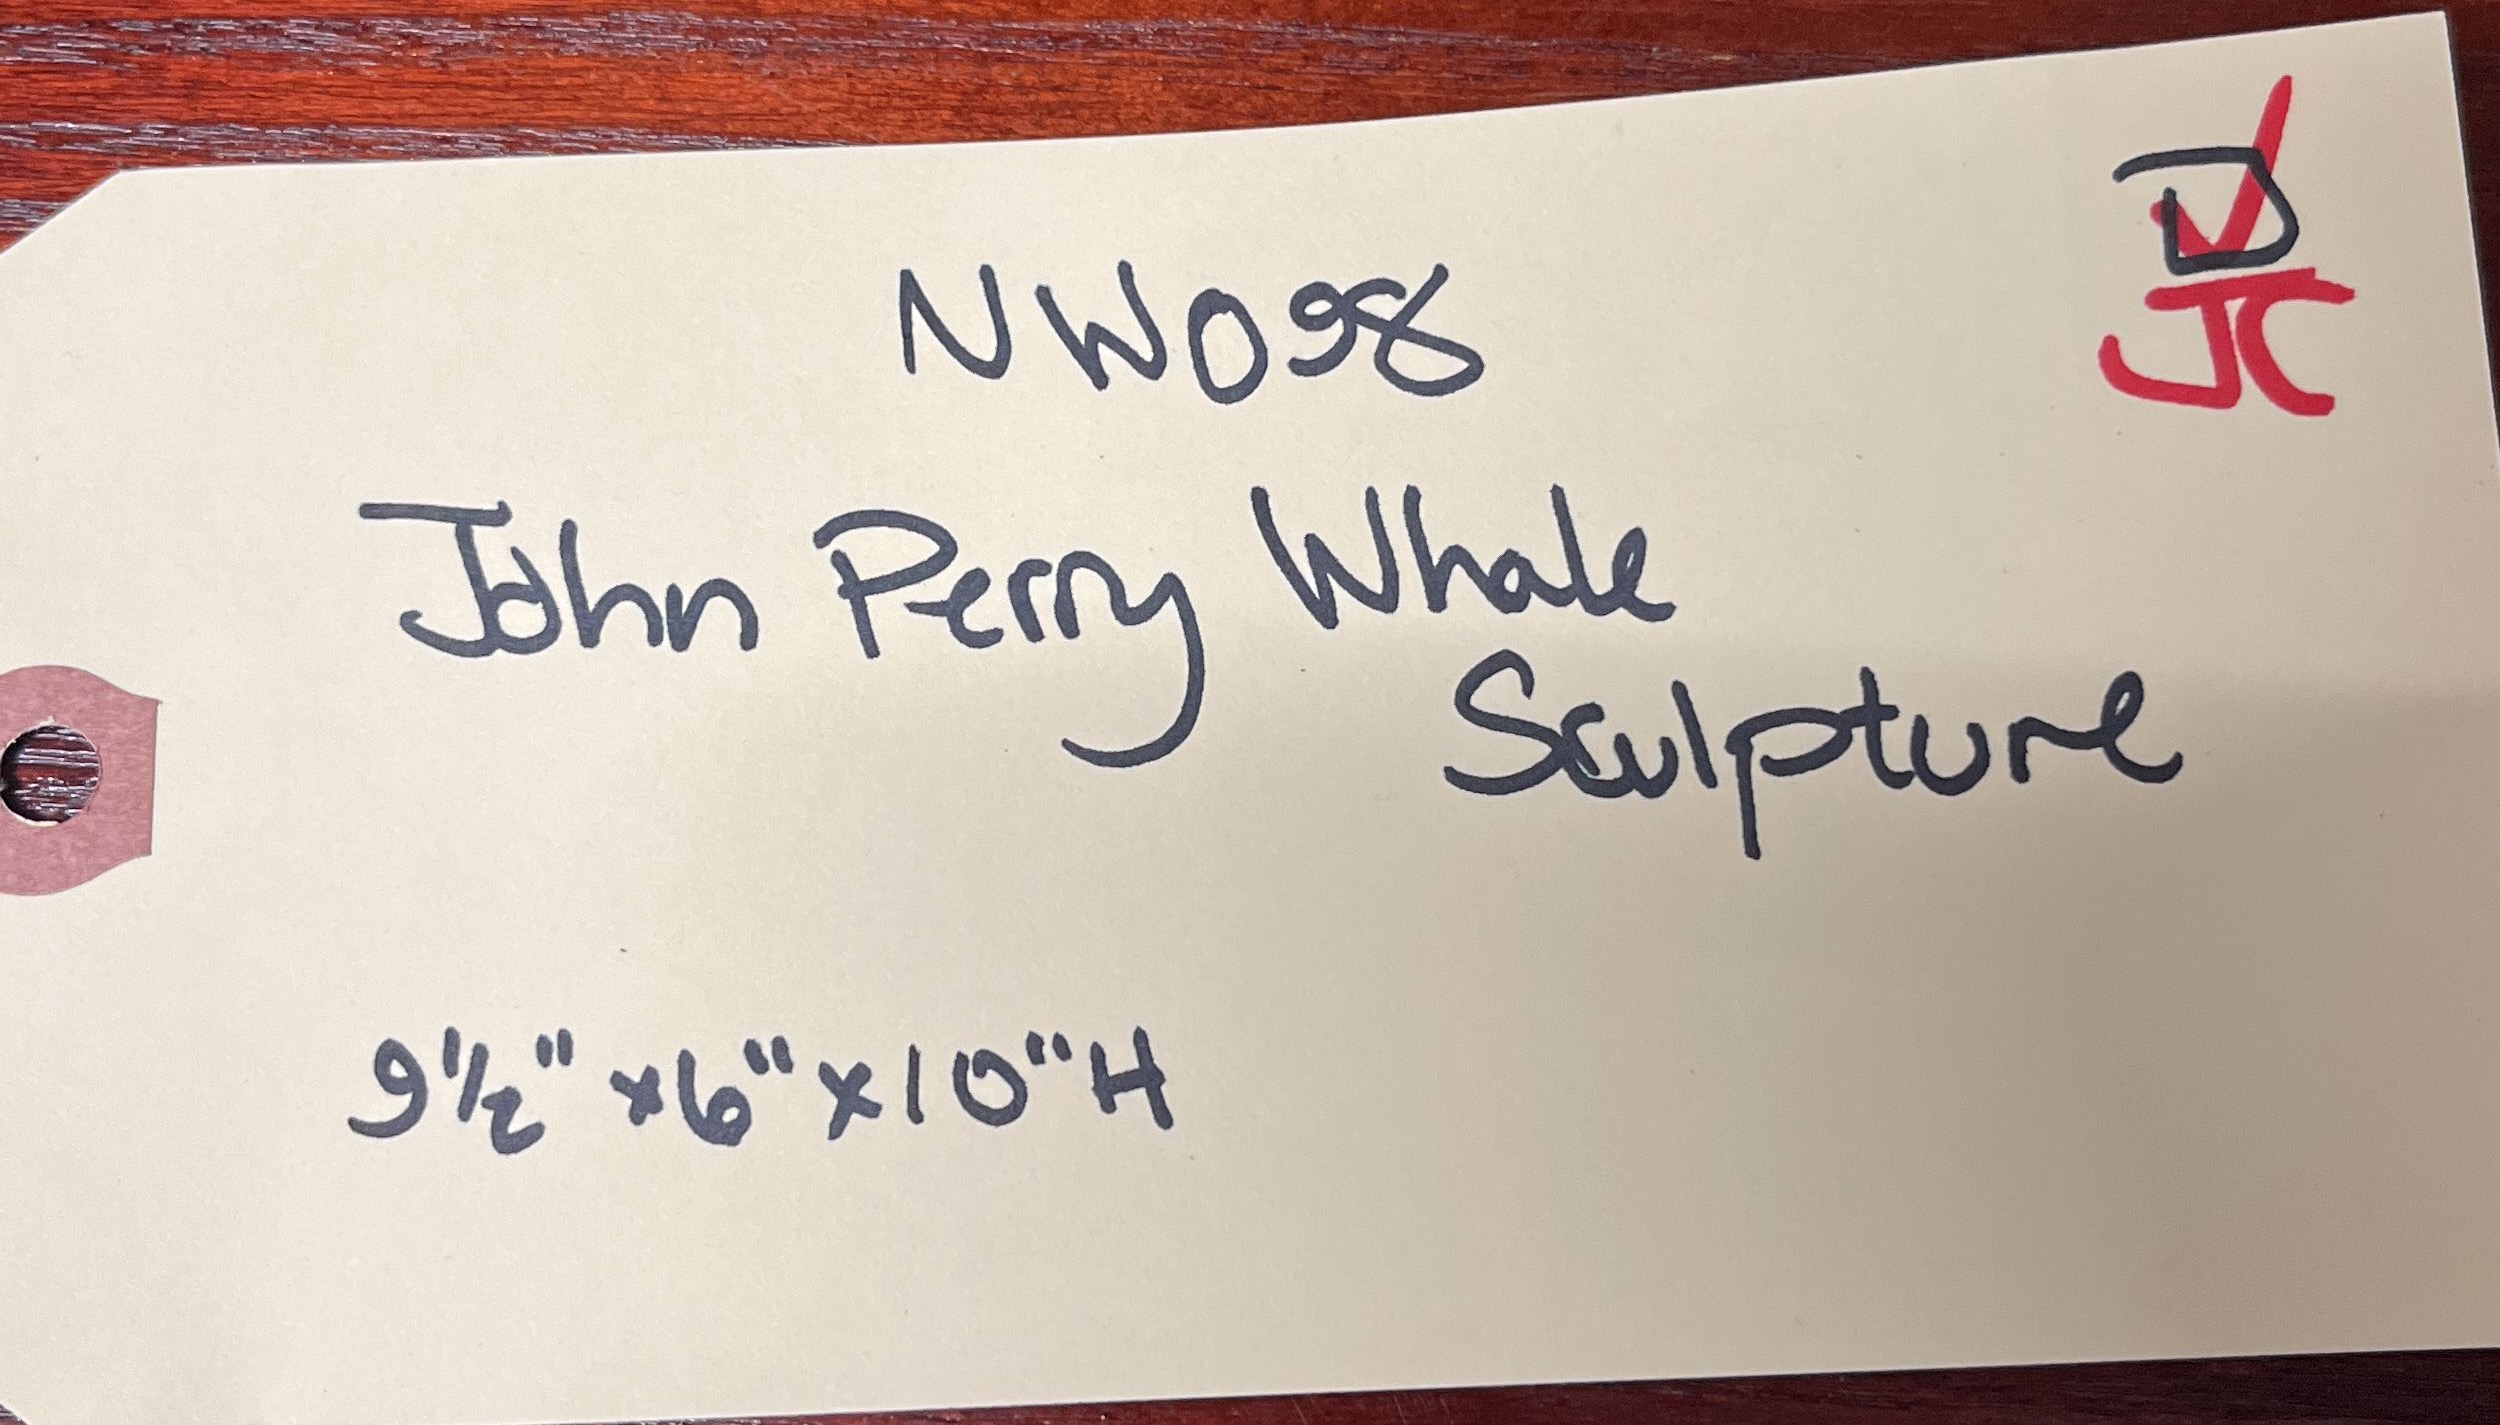 D
JC
NW098
John Perry Whale
Sculpture
9 1/2" x 6" x 10" H